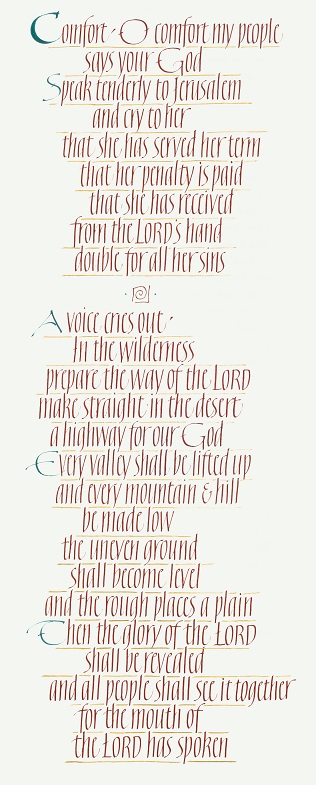 Comfort · O comfort my people
says your God
Speak tenderly to Jerusalem
and cry to her
that she has served her term
that her penalty is paid
that she has received
from the LORD's hand
double for all her sins
A voice cries out ·
In the wilderness
prepare the way of the LORD
make straight in the desert
a highway for our God
Every valley shall be lifted up
and every mountain & hill
be made low
the uneven ground
shall become level
and the rough places a plain
Then the glory of the LORD
shall be revealed
and all people shall see it together
for the mouth of
the LORD has spoken